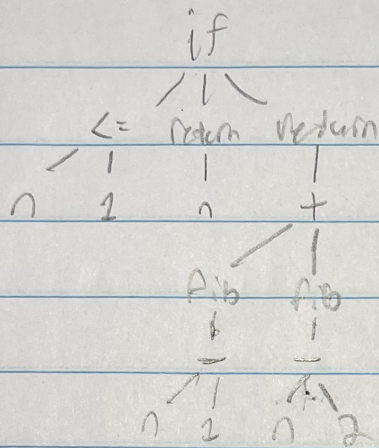 if
<= return return
n 1 n +
fib fib
- -
n 1 n 2